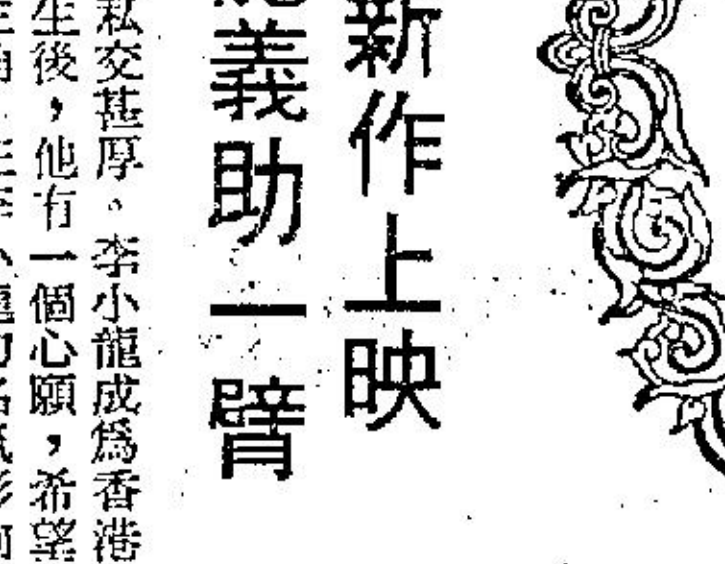 新作上映
義助一臂
私交甚厚。李小龍成爲香港
生後，他有一個心願，希望